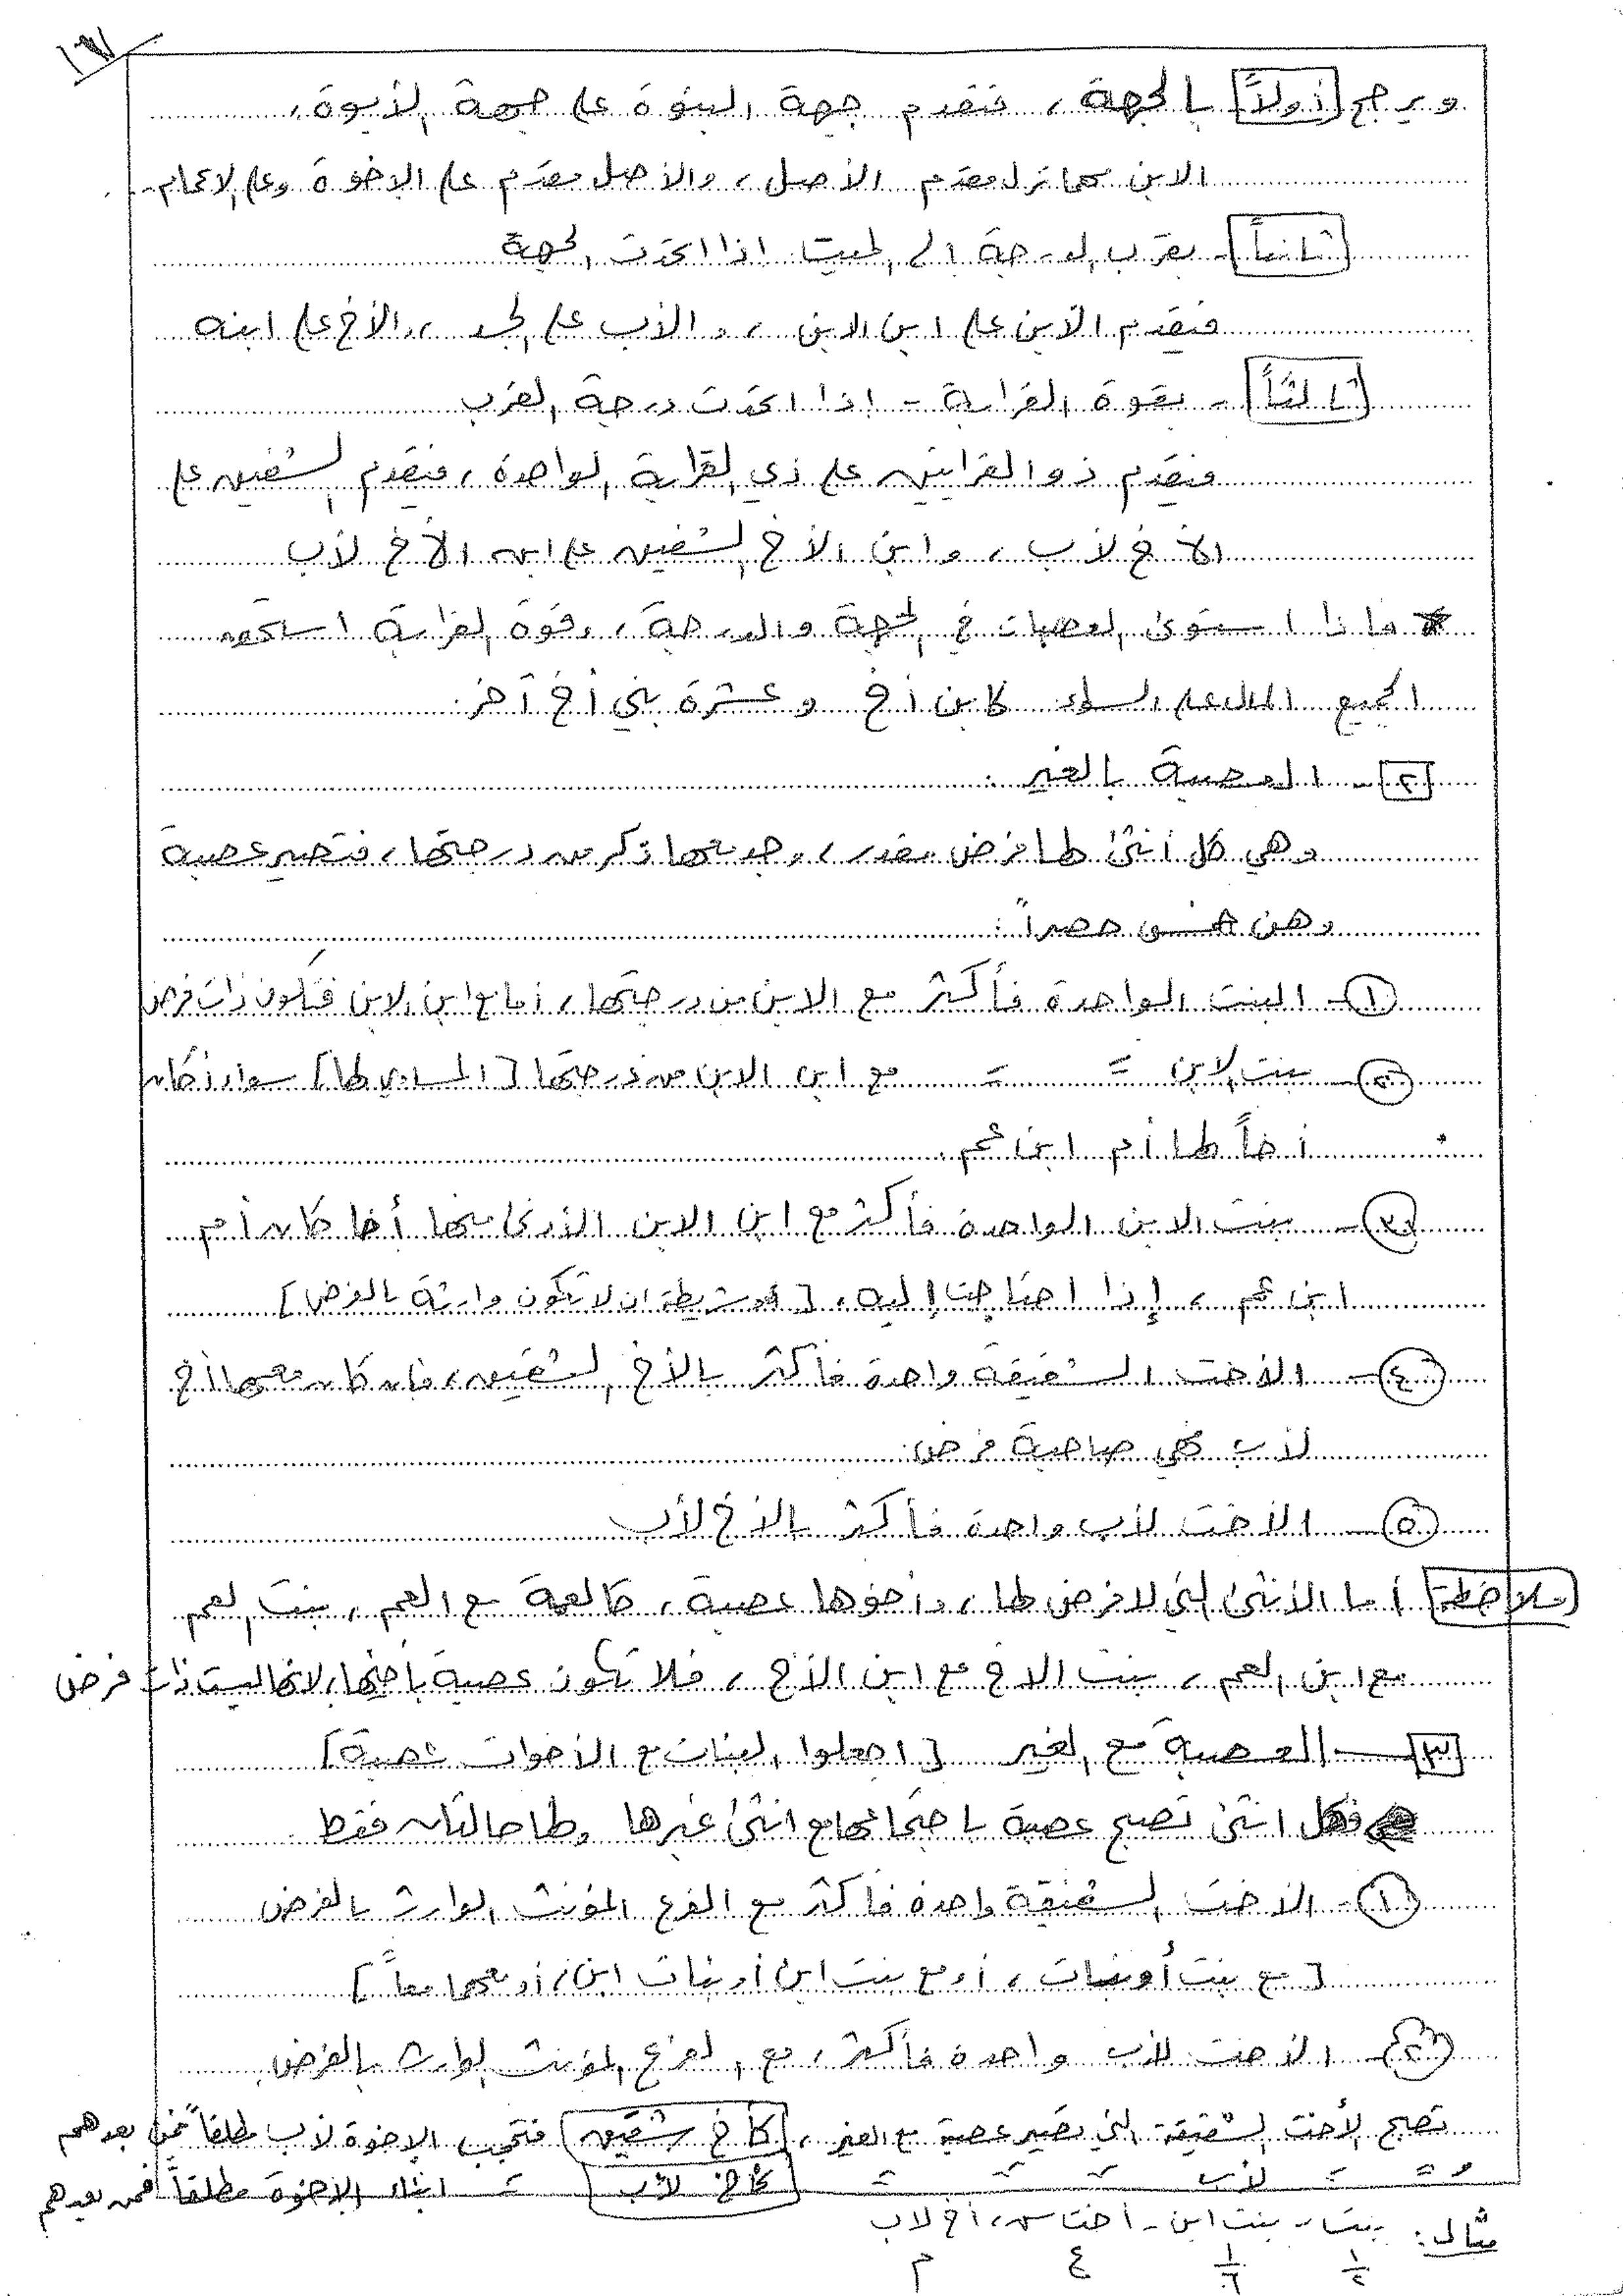 ١٩٧
ويرجح أولاً بالجهة، فتقدم جهة البنوة على جهة الأبوة،
الابن مهما نزل مقدم الأصل، والأصل مقدم على الإخوة وعلى الأعمام.
ثانياً - بقرب الدرجة الى الميت اذا اتحدت الجهة
فيقدم الابن على ابن الابن، والأب على الجد، والأخ على ابنه
ثالثاً - بقوة القرابة - إذا اتحدت درجة القرب
فيقدم ذو القرابتين على ذي القرابة الواحدة، فيقدم الشقيق على
الأخ لأب، وابن الأخ الشقيق على ابن الأخ لأب
* فاذا استوى العصبات في الجهة والدرجة، وقوة القرابة استحق
الجميع المال على السواء كابن أخ وعشرة بني أخ آخر.
٢ - العصبة بالغير:
وهي كل أنثى لها فرض مقدر، وجد معها ذكر من درجتها، فتصير عصبة
وهن خمس حصراً:
١ - البنت الواحدة فأكثر مع الابن من درجتها، أما مع ابن الابن فتكون ذات فرض
٢ - بنت الابن = = مع ابن الابن من درجتها [المساوي لها] سواء أكان
أخاً لها أم ابن عم.
٣ - بنت الابن الواحدة فأكثر مع ابن الابن الأدنى منها أخا كان أم
ابن عم، إذا احتاجت إليه، [شريطة ان لا تكون وارثة بالفرض]
٤ - الأخت الشقيقة واحدة فأكثر بالأخ الشقيق، فإن كان معها أخ
لأب فهي صاحبة فرض.
٥ - الأخت لأب واحدة فأكثر بالأخ لأب
ملاحظة أما الأنثى التي لا فرض لها، وأخوها عصبة، كالعمة مع العم، بنت العم
مع ابن العم، بنت الاخ مع ابن الأخ، فلا تكون عصبة بأخيها، لانها ليست ذات فرض
٣ - العصبة مع الغير [اجعلوا البنات مع الأخوات عصبة]
فكل انثى تصبح عصبة باجتماعها مع انثى غيرها ولها حالتان فقط
١ - الأخت الشقيقة واحدة فأكثر مع الفرع المؤنث الوارث بالفرض
[مع بنت أو بنات، أو مع بنت ابن أو بنات ابن، أو معهما معاً]
٢ - الأخت لأب واحدة فأكثر، مع الفرع المؤنث الوارث بالفرض.
تصبح الأخت الشقيقة التي تصير عصبة مع الغير، كأخ شقيق فتحجب الإخوة لأب مطلقاً فمن بعدهم
و = = لأب = = = = كأخ لأب = ابناء الإخوة مطلقاً فمن بعدهم
مثال: بنت - بنت ابن - أختا ش، أخ لاب
١/٢ ١/٦ ع م